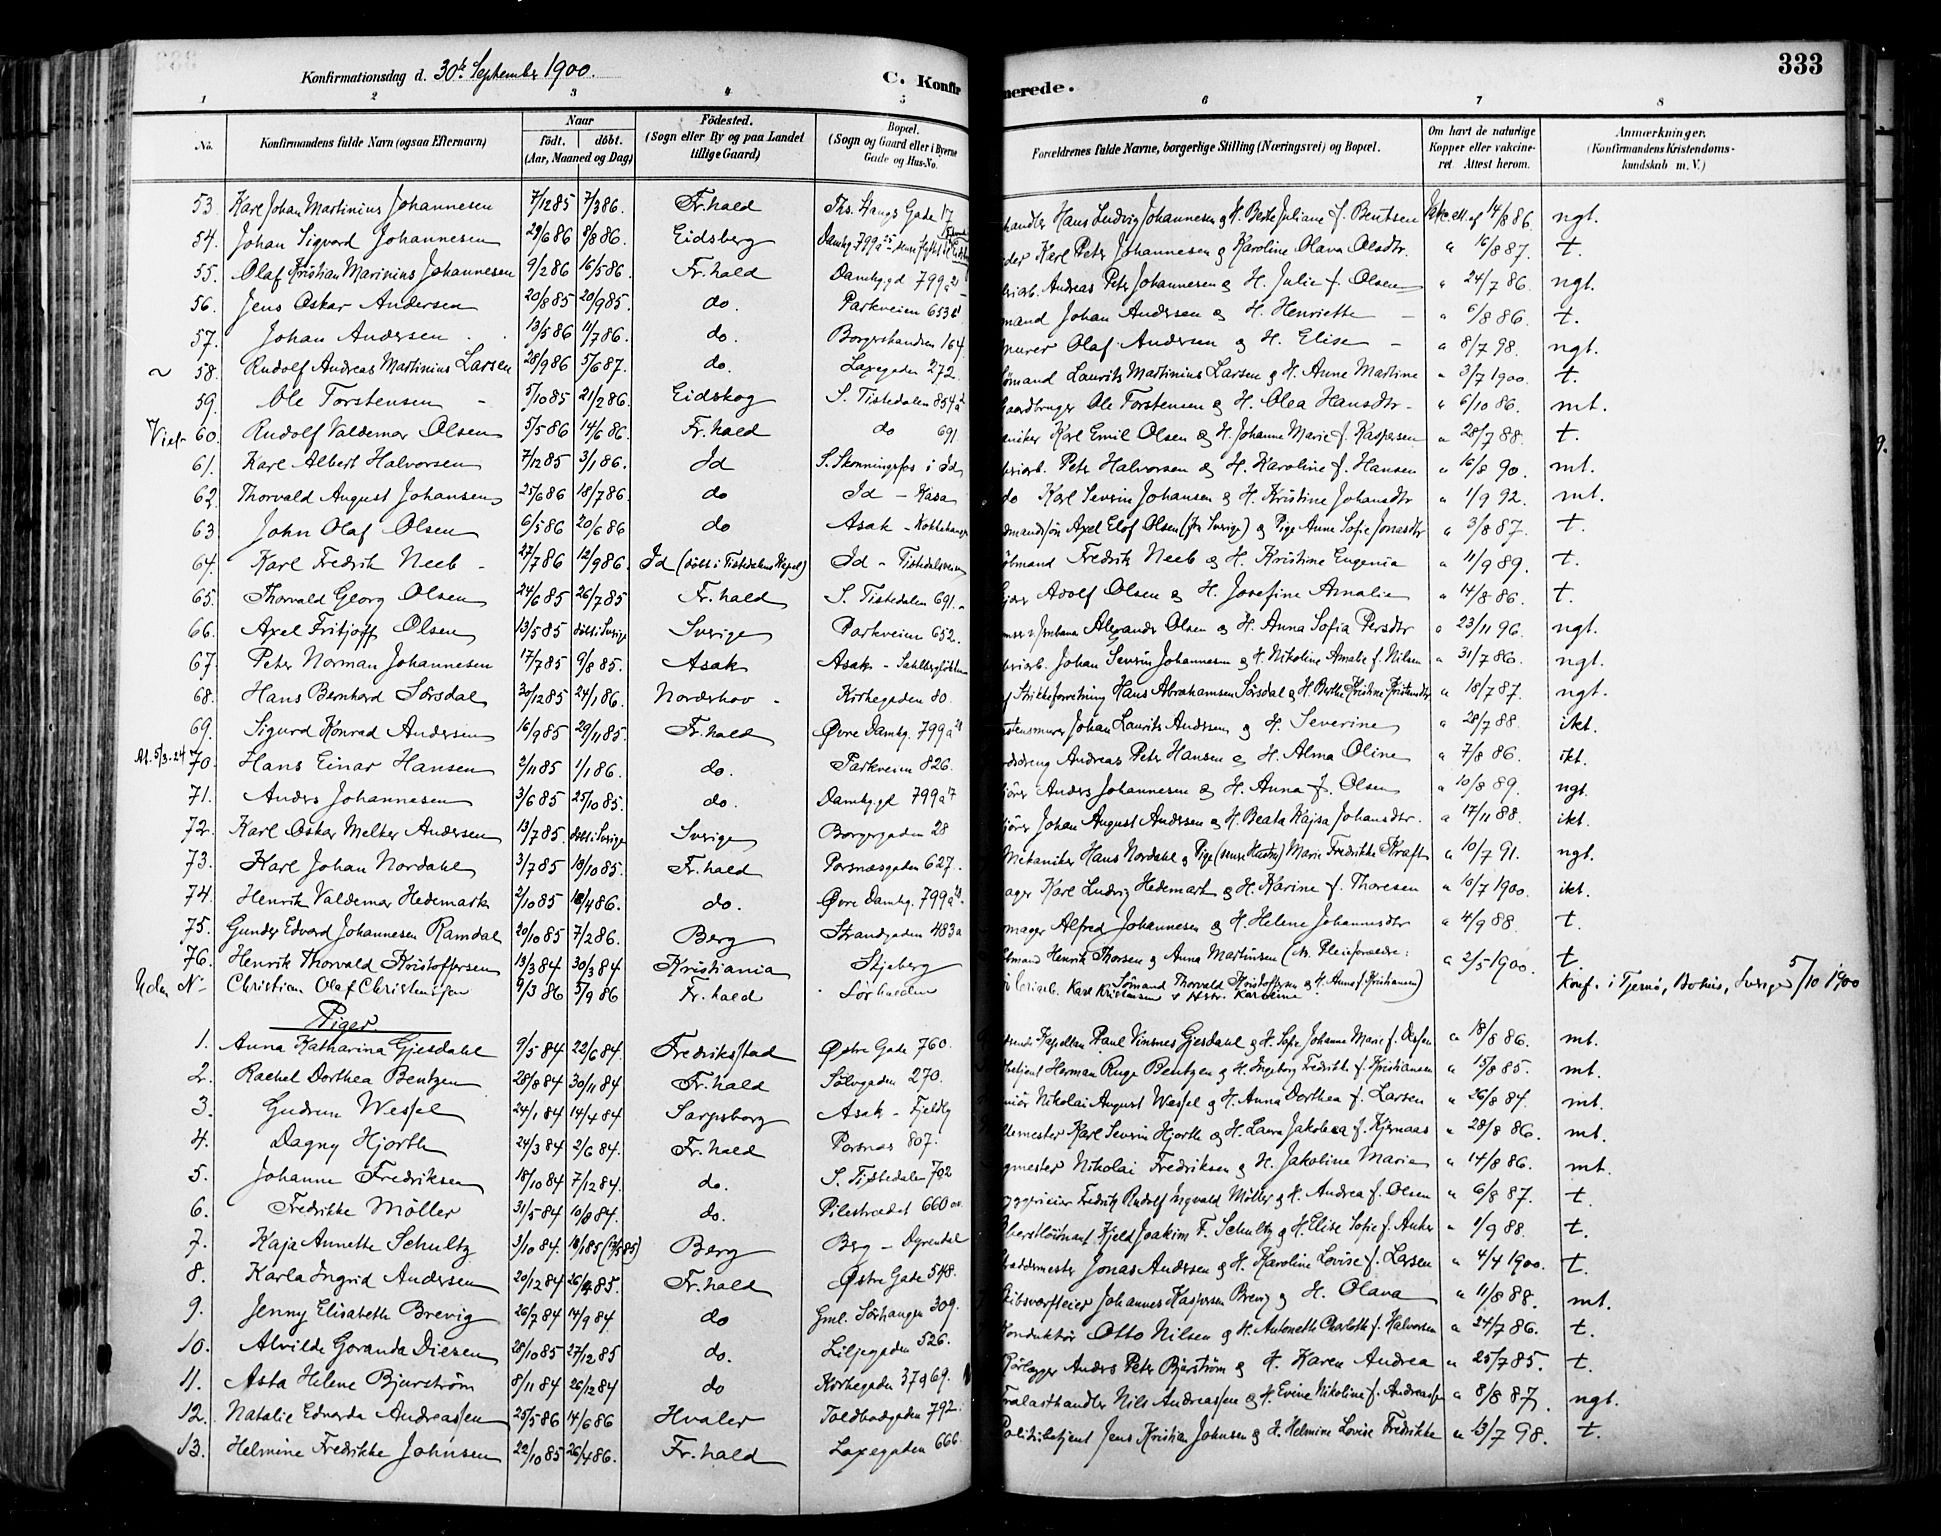 333
Konfirmationsdag d. 30te September 1900.
C. Konfir merede.
1 2 3 4 5 6 7 8
No. Konfirmandens fulde Navn (ogsaa Efternavn) Naar födt. döbt. (Aar, Maaned og Dag) Födested. (Sogn eller By og paa Landet tillige Gaard) Bopæl. (Sogn og Gaard eller i Byerne Gade og Hus-No. Forældrenes fulde Navne, borgerlige Stilling (Næringsvei) og Bopæl. Om havt de naturlige Kopper eller vaccineret. Attest herom. Anmærkninger. (Konfirmandens Kristendomskundskab m. V.)
53. Karl Johan Martinius Johannesen 7/12 85 7/3 86. Fr.hald Ths. Stangs Gade 17 handler Hans Ludvig Johannesen & H. Berte Juliane f. Bentsen 14/8 86. ngt.
54. Johan Sigvard Johannesen 29/6 86 8/8 86. Eidsberg Dambg. 799a Karl Peter Johannesen & Karoline Olava Olsdtr. " 16/8 87. t.
55. Olaf Kristian Marinius Johannesen 9/2 86 16/5 86. Fr.hald Dambygd 799a Andreas Peter Johannesen & H. Julie f. Olsen " 24/7 86. ngt.
56. Jens Oskar Andersen 20/8 85 20/9 85. do. Parkveien 653 mand Johan Andersen & H. Henriette – " 6/8 86. t.
57. Johan Andersen 13/5 86 11/7 86. do. Borgerskandsen 164. murer Olaf Andersen & H. Elise – " 8/7 98. ngt.
~ 58. Rudolf Andreas Martinius Larsen 28/9 86 5/6 87. do. Laxegaden 272. ömand Laurits Martinius Larsen & H. Anne Martine " 3/7 1900. t.
59. Ole Torstensen – 5/10 85 21/2 86. Eidskog S. Tistedalen 854a aardbruger Ole Torstensen & H. Olea Hansdtr – " 6/10 86. mt.
Viet 60. Rudolf Valdemar Olsen 5/5 86 14/6 86. Fr.hald do 691 aniker Karl Emil Olsen & H. Johanne Marie f. Kaspersen " 28/7 88. t.
61. Karl Albert Halvorsen 7/12 85 3/1 86. Id S. Skonningsfos i Id Peter Halvorsen & H. Karoline f. Hansen " 16/8 90. mt.
62. Thorvald August Johansen 25/6 86 18/7 86. do Id – Kasa do Karl Severin Johansen & H. Kristine Johansdtr " 1/9 92. mt.
63. John Olaf Olsen 6/5 86 20/6 86 do Asak – Axel Elof Olsen (fra Sverige) & Pige Anne Sofie Jonasdtr " 3/8 87. t.
64. Karl Fredrik Neeb – 27/7 86 12/9 86. Id (döbt i Tistedalens Kapel) Id – Tistedalsveien öbmand Fredrik Neeb & H. Kristine Eugenia " 11/9 89. t.
65. Thorvald Georg Olsen 24/6 85 26/7 85 Fr.hald S. Tistedalen 691. Adolf Olsen & H. Josefine Amalie " 14/8 86. t.
66. Axel Fritjoff Olsen 13/5 85 döbt i Sverige Sverige Parkveien 652. Alexander Olsen & H. Anna Sofia Persdtr " 23/11 96. ngt.
67. Peter Norman Johannesen 17/7 85 9/8 85. Asak Asak – Johan Severin Johannesen & H. Nikoline Amalie f. Nilsen " 31/7 86. ngt.
68. Hans Bernhard Sörsdal 30/12 85 24/1 86. Norderhov – Kirkegaden 80. Strikkeforretning Hans Abrahamsen Sörsdal & H. Berthe Kristine Kristendtr " 18/7 87. ngt.
69. Sigurd Konrad Andersen 16/9 85 29/11 85. Fr.hald Øvre Dambg. 799a murer Johan Laurits Andersen & H. Severine " 28/7 88. ikt.
At. 5/3-24 70. Hans Einar Hansen 2/11 85 1/1 86. do. Parkveien 826. Andreas Peter Hansen & H. Alma Oline " 7/8 86. ikt.
71. Anders Johannesen 3/6 85 25/10 85. do. Dambygd 799a Anders Johannesen & H. Anna f. Olsen " 10/8 89. ngt.
72. Karl Oskar Melker Andersen 13/7 85. döbt i Sverige Sverige Borgergaden 28 Johan August Andersen & H. Beata Kajsa Johansdtr. " 17/11 88. ikt.
73. Karl Johan Nordahl 3/7 85 18/10 85. Fr.hald Porsnæsgaden 627. Mekaniker Hans Nordahl & Pige (senere Hustru) Marie Fredrikke Kraft " 10/7 91. ngt.
74. Henrik Valdemar Hedemark 2/10 85 18/4 86. do. Øvre Dambg. 799a ager Karl Ludvig Hedemark & H. Karine f. Thoresen " 16/7 1900. ikt.
75. Gunder Edvard Johannesen Ramdal 20/10 85 7/2 86. Berg Strandgaden 483a mager Alfred Johannesen & H. Helene Johannesdtr " 4/9 88. t.
76. Henrik Thorvald Kristoffersen 13/3 84 30/3 84 Kristiania Skjeberg Henrik Thorsen & Anna Martinsen (Pleieforældre: Sömand Thorvald Kristoffersen & H. Anne f. Kristiansen) " 2/5 1900. t.
Uden No Christian Olaf Christensen 9/3 86 5/9 86 Fr.hald Sörhalden Karl Kristiansen & Hstr. Karoline Konf. i Tjernö, Bohus, Sverige 5/10 1900
Piger
1. Anna Katharina Gjesdahl 9/5 84 22/6 84. Fredriksstad Østre Gade 760. Kapellan Paul Vinsnes Gjesdahl & H. Sofie Johanne Marie f. " 18/8 86. mt.
2. Rachel Dorthea Bentzen 28/8 84 30/11 84 Fr.hald Sölvgaden 270. Herman Ruge Bentzen & H. Ingeborg Fredrikke f. Kristiansen " 15/8 85. mt.
3. Gudrun Wessel 24/1 84 14/4 84 Sarpsborg Asak – Fjeldly Nikolai August Wessel & H. Anna Dorthea f. Larsen " 26/8 84. mt.
4. Dagny Hjorth 24/3 84 2/6 84. Fr.hald Porsnæs 807. mester Karl Severin Hjorth & H. Laura Jakobea f. Kjernaas " 28/8 86. mt.
5. Johanne Fredriksen 18/10 84 7/12 84. do. S. Tistedalen 702 gmester Nikolai Fredriksen & H. Jakoline Marie " 14/8 86. mt.
6. Fredrikke Möller 31/5 84 10/8 84. do. Pilestrædet 660 Fredrik Rudolf Ingvald Möller & H. Andrea f. Olsen " 6/8 87. t.
7. Kaja Annette Schultz 3/10 84. 18/1 85 Berg Berg – Dyrendal Oberstlöitnant Kjeld Joakim F. Schultz & H. Elise Sofie f. Anker " 1/9 88. t.
8. Karla Ingrid Andersen 20/12 84 26/4 85. Fr.hald Østre Gade 548. Jonas Andersen & H. Karoline Lovise f. Larsen " 4/4 1900. t.
9. Jenny Elisabeth Brevig 26/7 84 14/9 84. do Gml. Sörhaugen 309. kibsværfteier Johannes Kaspersen Brevig & H. Olava " 11/8 88. mt.
10. Alvilde Goranda Diesen 28/10 85 27/12 85 do. Liljegaden 526. Konduktör Otto Nilsen & H. Antonette Charlotte f. Halvorsen " 24/7 86. t.
11. Asta Helene Bjurström 8/11 84 26/12 84 do Kirkegaden 37 & 69. Rörlægger Anders Peter Bjurström & H. Karen Andrea " 25/7 85. t.
12. Natalie Edvarda Andreassen 25/5 86 14/6 86 Hvaler Toldbodgaden 792. Tralasthandler Nils Andreassen & H. Evine Nikoline f. Andreassen " 8/8 87. ngt.
13. Helmine Fredrikke Johnsen 22/10 85 26/4 86. Fr.hald Laxegaden 666. Politibetjent Jens Kristian Johnsen & H. Helmine Lovise Fredrikke " 13/7 98. t.